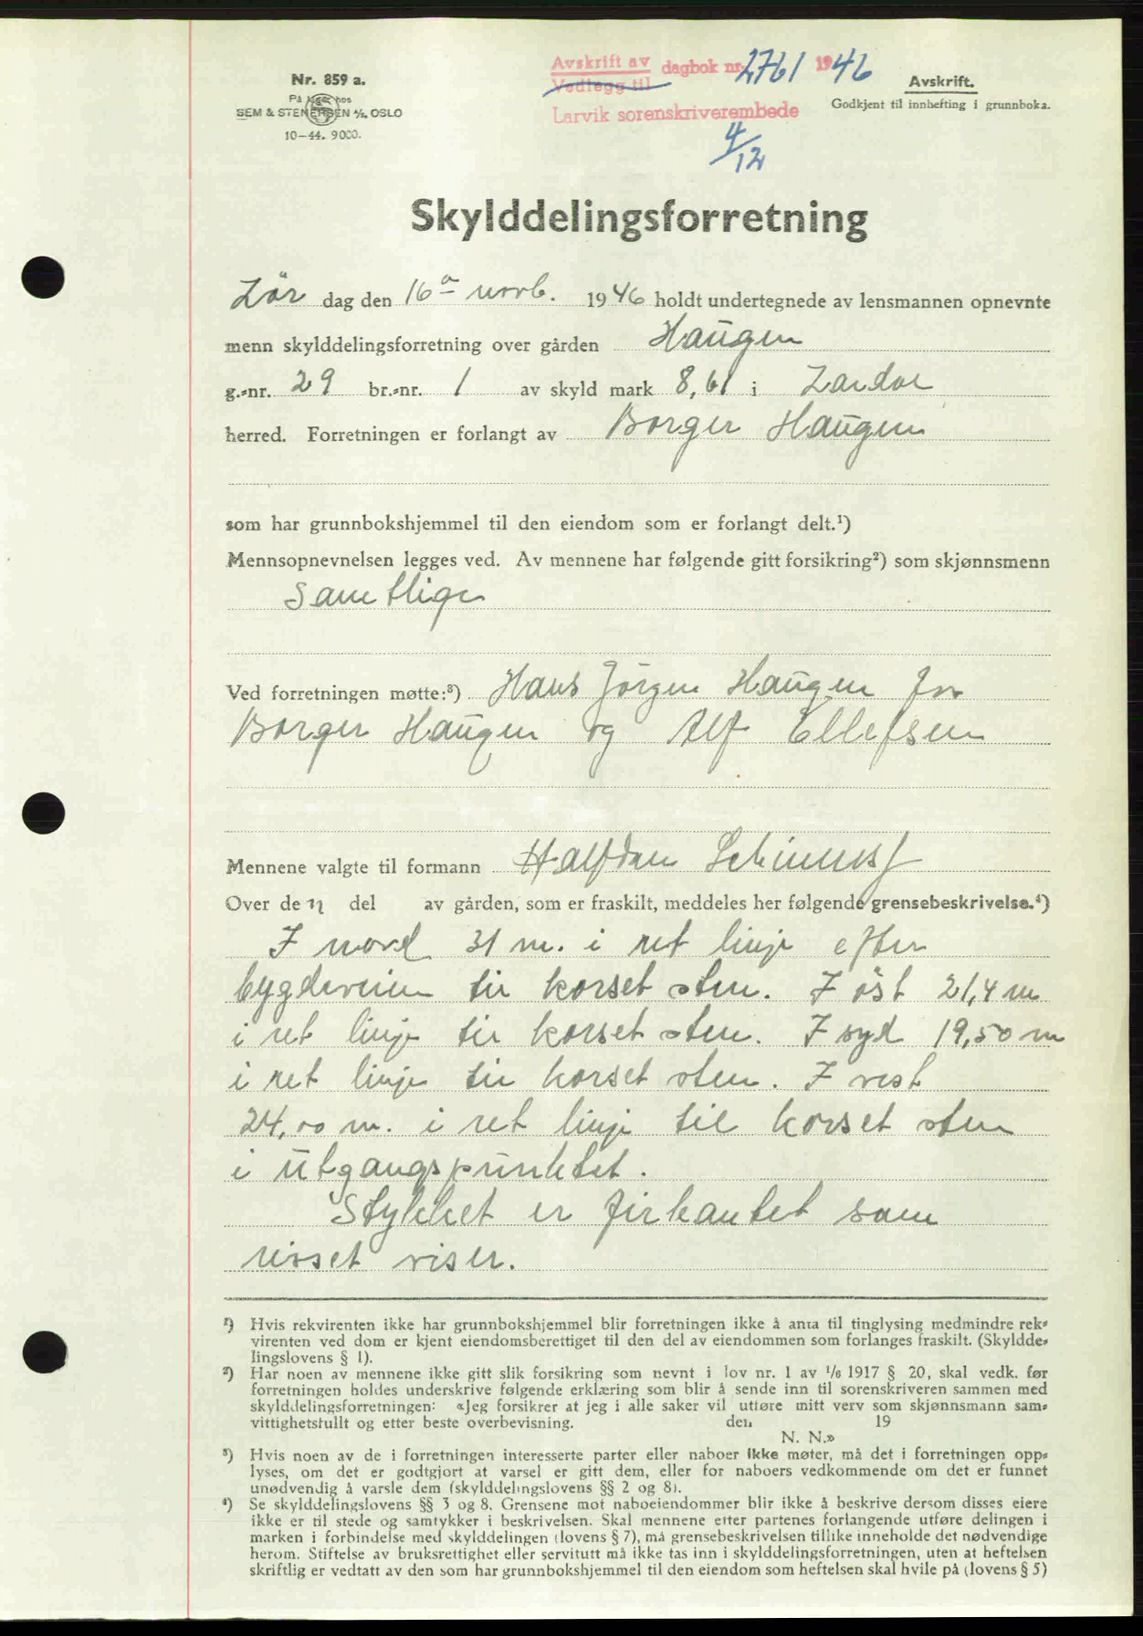 Nr. 859 a.
På lager hos
SEM & STENERSEN A/S, OSLO
10-44. 9000.
Avskrift av dagbok nr. 2761 1946
Vedlegg til
Larvik sorenskriverembede
4/12
Avskrift.
Godkjent til innhefting i grunnboka.
Skylddelingsforretning
Lør dag den 16de novb. 1946 holdt undertegnede av lensmannen opnevnte
menn skylddelingsforretning over gården Haugen
g.-nr. 29 br.-nr. 1 av skyld mark 8,61 i Lardal
herred. Forretningen er forlangt av Borger Haugen
som har grunnbokshjemmel til den eiendom som er forlangt delt.¹)
Mennsopnevnelsen legges ved. Av mennene har følgende gitt forsikring²) som skjønnsmenn
Samtlige
Ved forretningen møtte:³) Hans Jørgen Haugen for
Borger Haugen og Alf Ellefsen
Mennene valgte til formann Halfdan
Over de n del av gården, som er fraskilt, meddeles her følgende grensebeskrivelse.⁴)
I nord 31 m. i ret linje efter
bygdeveien til korset sten. I øst 21,4 m
i ret linje til korset sten. I syd 19,50 m
i ret linje til korset sten. I vest
24,00 m. i ret linje til korset sten
i utgangspunktet.
Stykket er firkantet som
risset viser.
¹) Hvis rekvirenten ikke har grunnbokshjemmel blir forretningen ikke å anta til tinglysing medmindre rek-
virenten ved dom er kjent eiendomsberettiget til den del av eiendommen som forlanges fraskilt. (Skyldde-
lingslovens § 1).
²) Har noen av mennene ikke gitt slik forsikring som nevnt i lov nr. 1 av 1/6 1917 § 20, skal vedk. før
forretningen holdes underskrive følgende erklæring som blir å sende inn til sorenskriveren sammen med
skylddelingsforretningen: «Jeg forsikrer at jeg i alle saker vil utføre mitt verv som skjønnsmann sam-
vittighetsfullt og etter beste overbevisning. den 19
N. N.»
³) Hvis noen av de i forretningen interesserte parter eller naboer ikke møter, må det i forretningen opp-
lyses, om det er godtgjort at varsel er gitt dem, eller for naboers vedkommende om det er funnet
unødvendig å varsle dem (skylddelingslovens §§ 2 og 8).
⁴) Se skylddelingslovens §§ 3 og 8. Grensene mot naboeiendommer blir ikke å beskrive dersom disses eiere
ikke er til stede og samtykker i beskrivelsen. Skal mennene etter partenes forlangende utføre delingen i
marken i forbindelse med skylddelingen (lovens § 7), må grensebeskrivelsen tillike inneholde det nødvendige
herom. Stiftelse av bruksrettighet eller servitutt må ikke tas inn i skylddelingsforretningen, uten at heftelsen
skriftlig er vedtatt av den som har grunnbokshjemmel til den eiendom som heftelsen skal hvile på (lovens § 5)